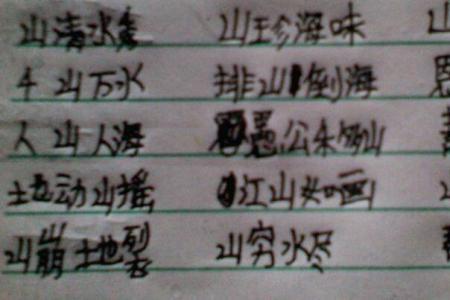 山清水秀 山珍海味 山
千山万水 排山倒海
人山人海 愚公移山
地动山摇 江山如画
山崩地裂 山穷水尽